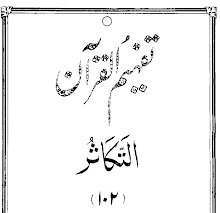 تفہیم القرآن
التَّكَاثُر
(۱۰۲)